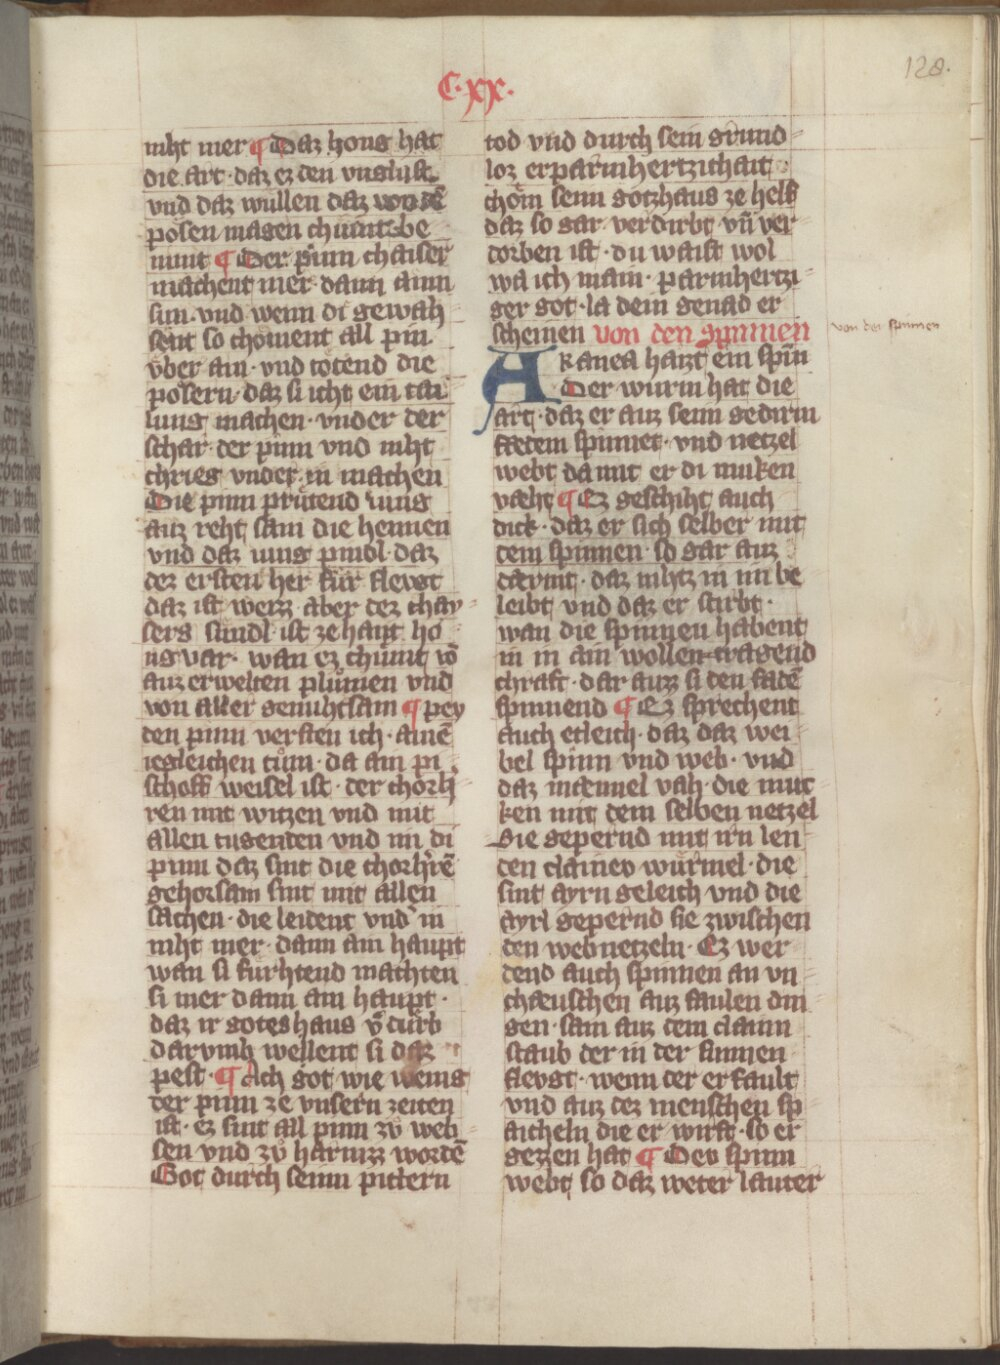 C·xx·
128.
niht mer ¶ Daz hong hat
die art· daz ez den vnglust·
vnd daz wullen daz von dē
posen magen chümt be
nimt ¶ Der pinn chaiser
machent mer dann ainn
sun· vnd wenn di gewah
sent so choment all pin
vber ain· vnd tötend die
posern· daz si icht ein tai
lung machen· vnder der
schar· der pinn vnd niht
chrieg vnder in machen
Die pinn prütend iung
auz reht sam die hennen
vnd daz iung pindl· daz
dez ersten her für flevgt
daz ist weizz· aber dez chay
sers sündl· ist zehant ho
nigvar· wan ez chümt vō
auz erwelten plůmen vnd
von aller genuhtsam ¶ pey
den pinn versten ich· ainē
iegleichen tům· da ain pi
schoff weisel ist· der chorh
ren mit witzen vnd mit
allen tugenden vnd nn di
pinn daz sint die chorh'rē
gehorsam sint mit allen
sachen· die leident vnd' in
niht mer· dann ain haupt
wan si fürhtend machten
si mer dann ain haupt·
daz ir goteshaus v'dürb
darvmb wellent si daz
pest· ¶ Ach got wie wenig
der pinn ze vnsern zeiten
ist· ez sint all pinn zů web
sen vnd zů harnizz wordē
Got durch seinn pittern
tod vnd durch sein grund
loz erparmhertzichait
chöm seim gotzhaus ze helf
daz so gar verdirbt vn̄ ver
dorben ist· du waist wol
wa ich main· parmhertzi
ger got· la dein genad er
scheinen von den spinnen
von den spinnen
Aranea haizt ein spīn
Der wurm hat die
art· daz er auz seim gedirm
fedem spinnet· vnd netzel
webt da mit er di muken
væht ¶ Ez geschiht auch
dick· daz er sich selber mit
dem spinnen· so gar auz
dærmt· daz nihtz in im be
leibt vnd daz er stirbt·
wan die spinnen habent
in in ain wollen tragend
chraft· dar auzz si den fadē
spinnend ¶ Ez sprechent
auch etleich· daz daz wei
bel spinn vnd web· vnd
daz mennel vah· die muc
ken mit dem selben netzel
Sie gepernd mit irn len
den clainev würmel· die
sint ayrn geleich vnd die
ayrl gepernd sie zwischen
den webnetzeln· Ez wer
dend auch spinnen an vn
chæuschen auz faulen din
gen· sam auz dem clainn
staub der in der sunnen
flevgt· wenn der erfault
vnd auz dez menschen sp
aicheln die er wirft· so er
gezzen hat ¶ Dev spinn
webt so daz weter lauter